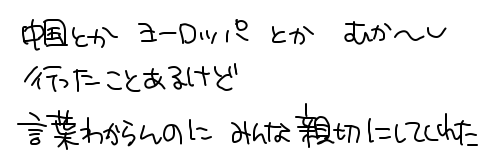 中国とか ヨーロッパ とか むか〜し
行ったことあるけど
言葉わからんのに みんな親切にしてくれた